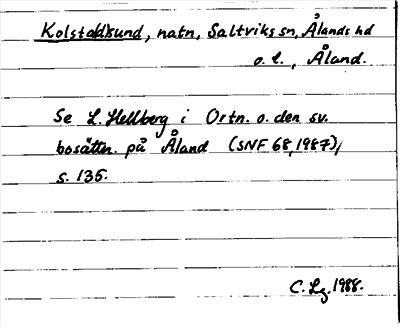 Kolstaddsund, natn, Saltviks sn, Ålands hd
o. l., Åland.
Se L. Hellberg i Ortn. o. den sv.
bosättn. på Åland (SNF 68, 1987),
s. 135.
C. Lg. 1988.